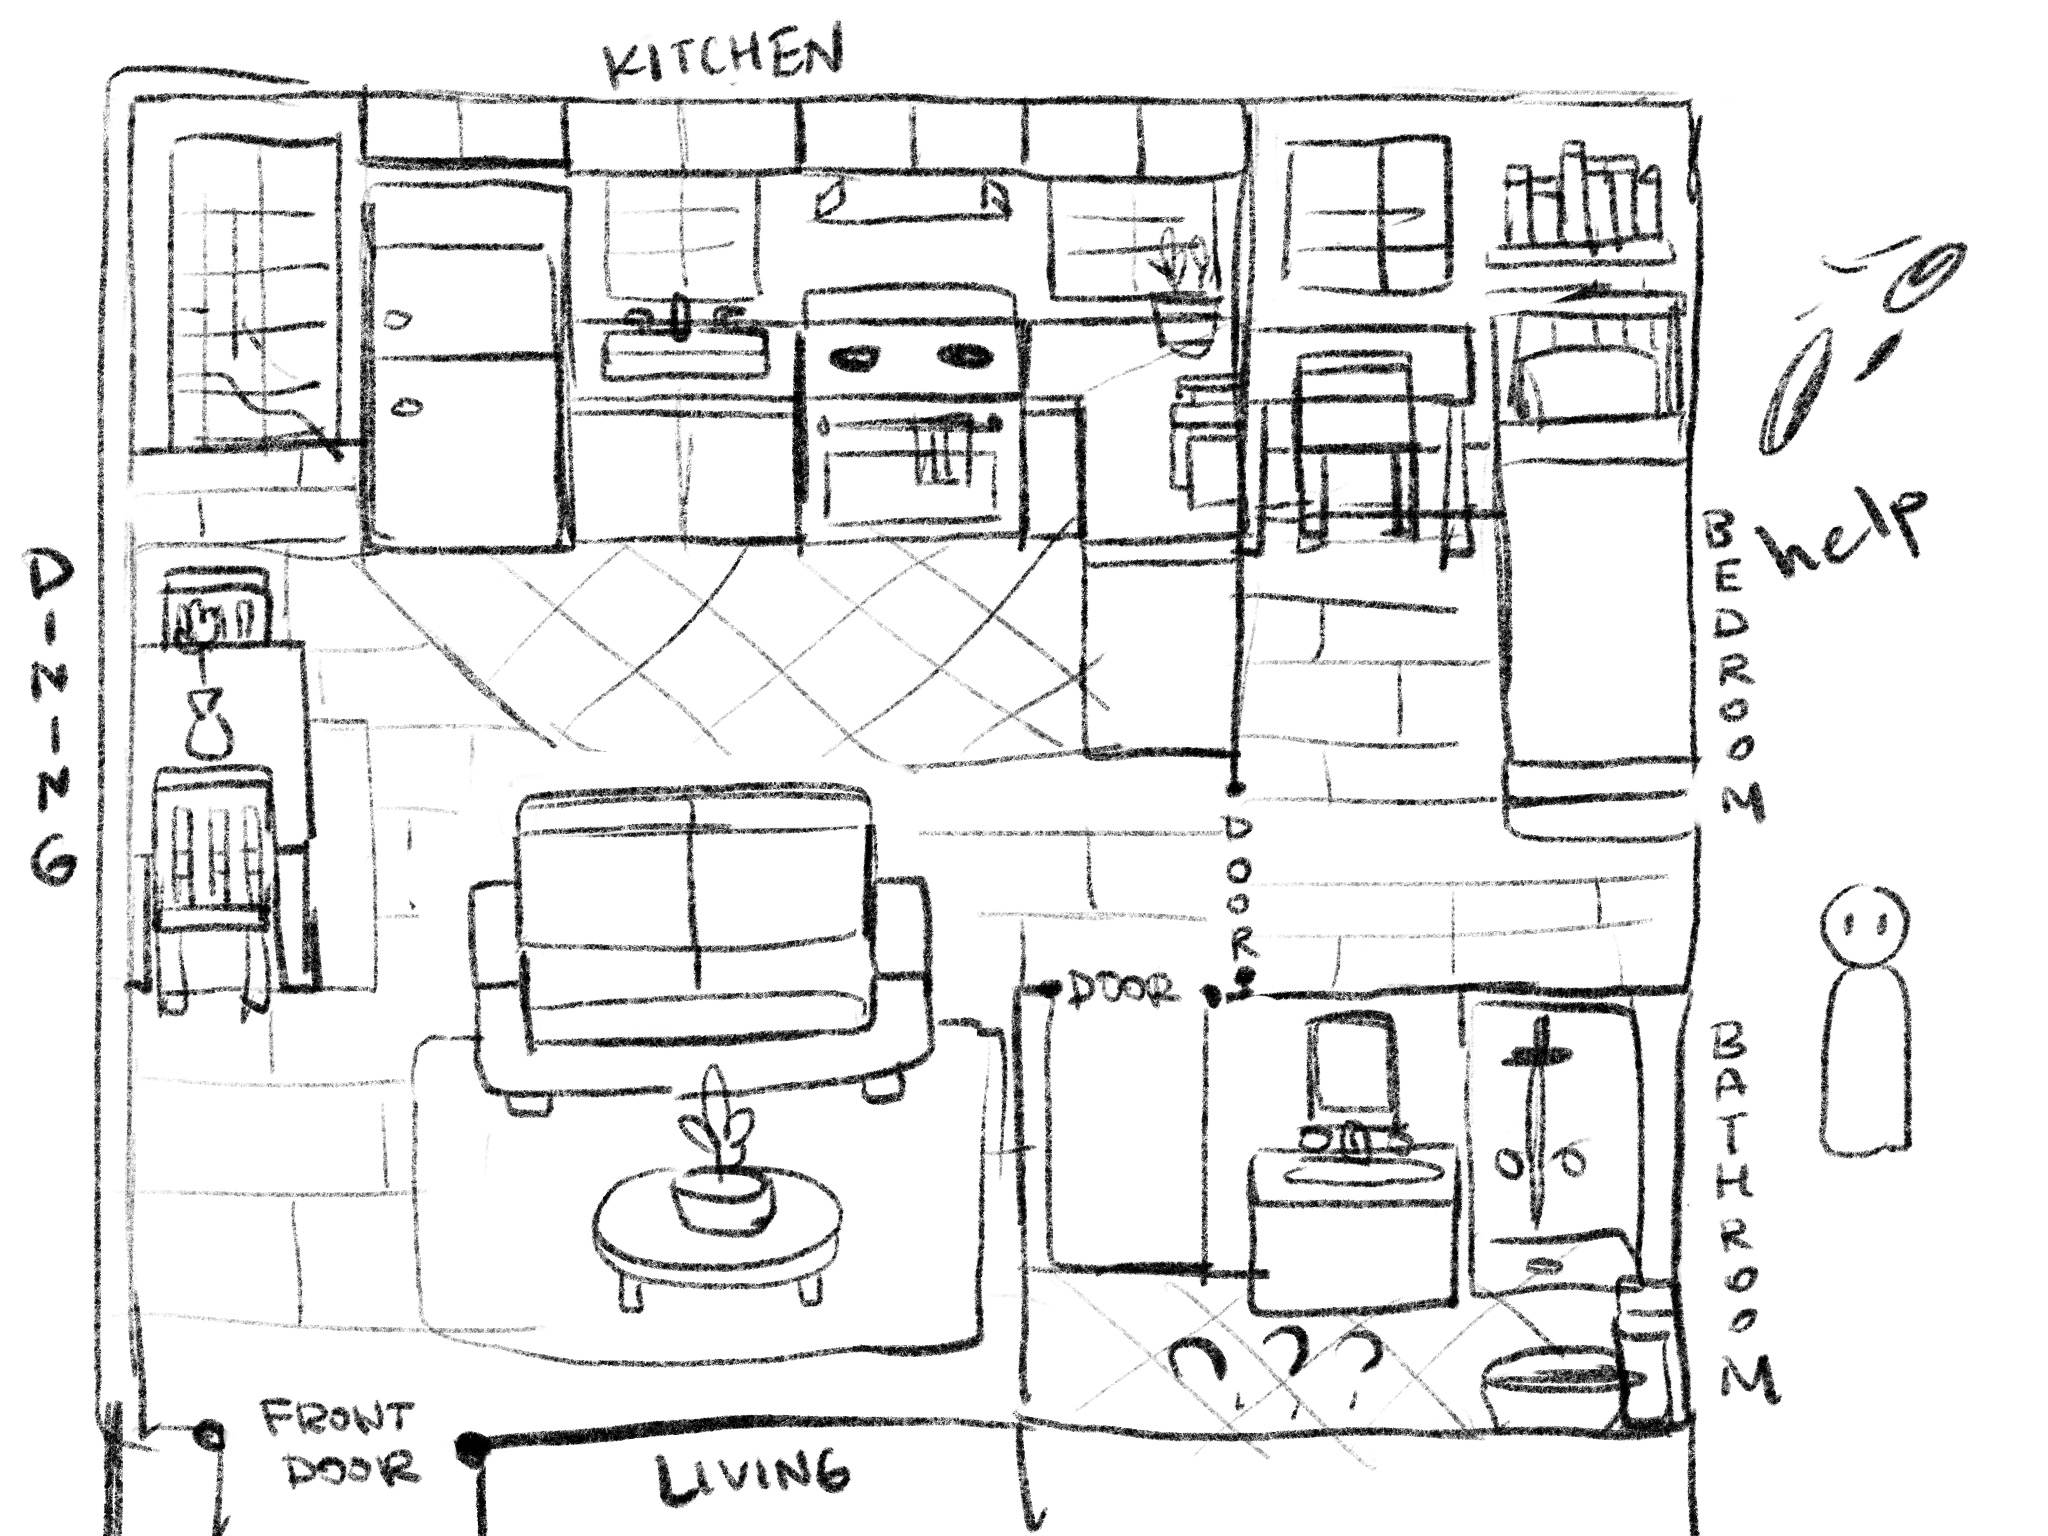 KITCHEN
DINING
BEDROOM
help
DOOR
DOOR
BATHROOM
FRONT
DOOR
LIVING
???